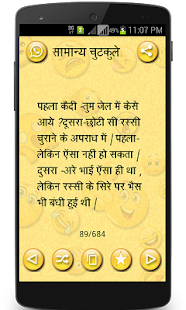 11:07 PM
सामान्य चुटकुले
पहला कैदी -तुम जेल में कैसे
आये ?दूसरा-छोटी सी रस्सी
चुराने के अपराध में | पहला-
लेकिन ऐंसा नही हो सकता |
दूसरा -अरे भाई ऐंसा ही था ,
लेकिन रस्सी के सिरे पर भैंस
भी बंधी हुई थी |
89/684